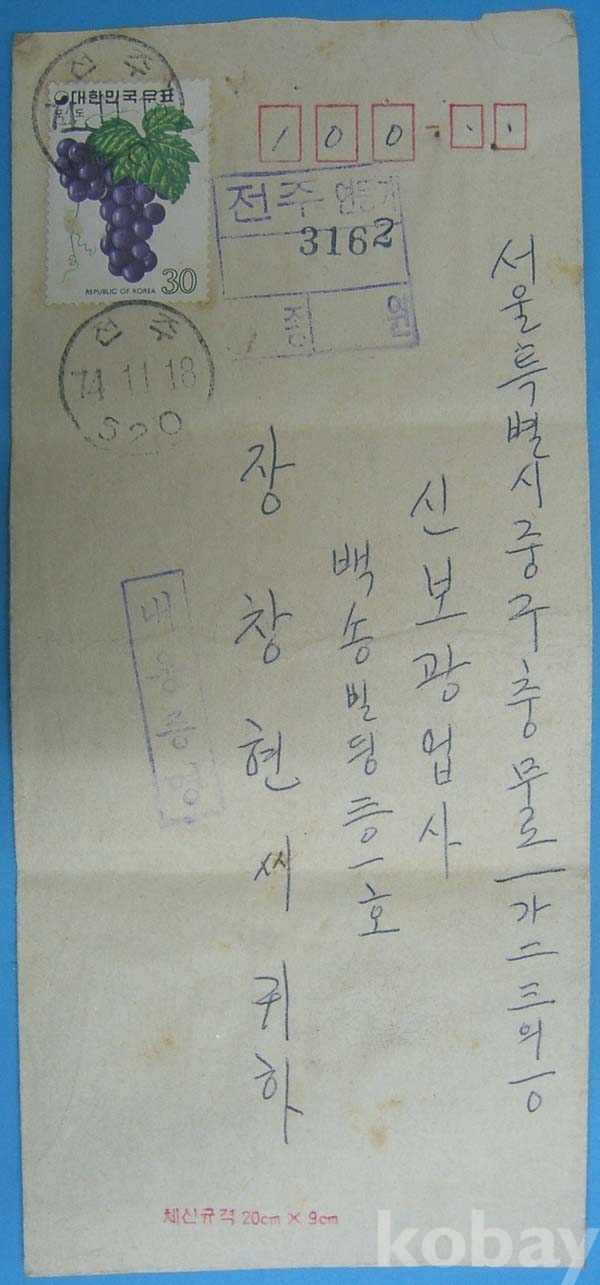 전주
대한민국우표
포도
REPUBLIC OF KOREA 30
100-··
전주
3162
종 원
전주
74.11.18
520
서울특별시중구충무로一가二三의一〇
신보광업사
백송빌딩三〇一호
장창현씨귀하
내용증명
체신규격 20cm × 9cm
kobay